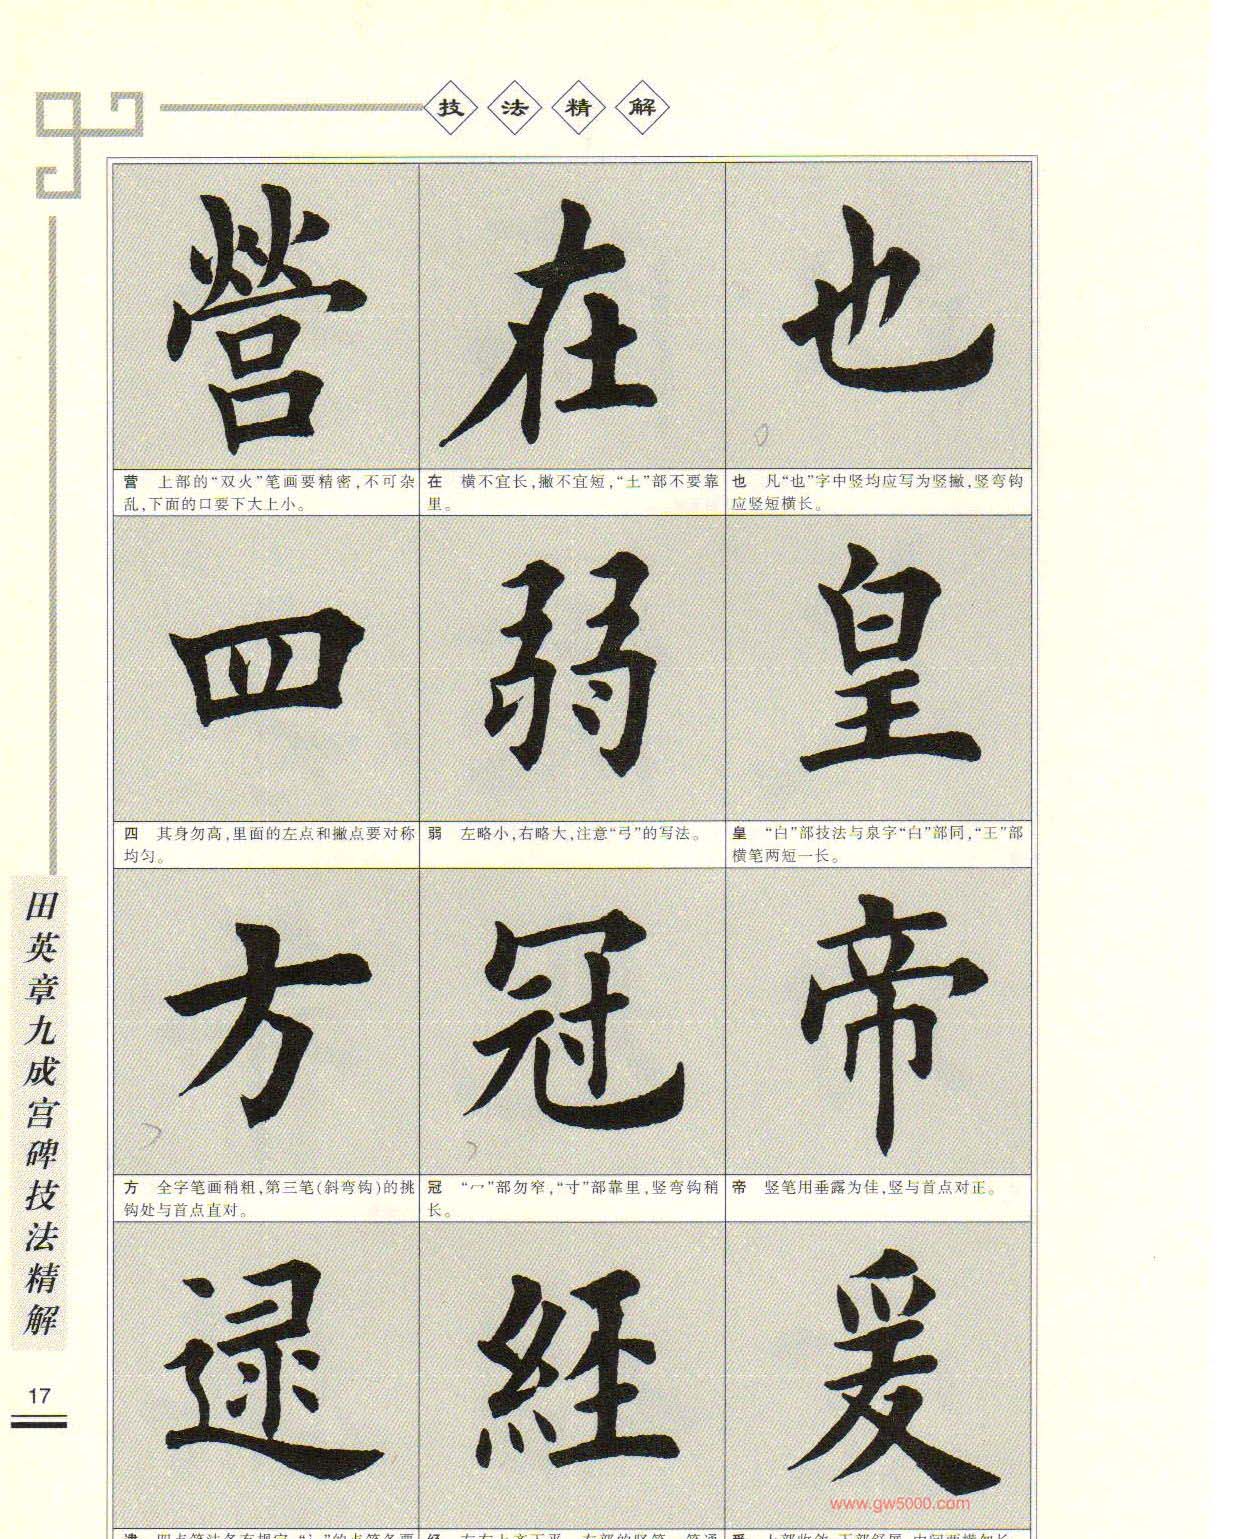 技法精解
營
在
也
营 上部的“双火”笔画要精密,不可杂
乱,下面的口要下大上小。
在 横不宜长,撇不宜短,“土”部不要靠
里。
也 凡“也”字中竖均应写为竖撇,竖弯钩
应竖短横长。
四
弱
皇
四 其身勿高,里面的左点和撇点要对称
均匀。
弱 左略小,右略大,注意“弓”的写法。
皇 “白”部技法与泉字“白”部同,“王”部
横笔两短一长。
方
冠
帝
方 全字笔画稍粗,第三笔(斜弯钩)的挑
钩处与首点直对。
冠 “冖”部勿窄,“寸”部靠里,竖弯钩稍
长。
帝 竖笔用垂露为佳,竖与首点对正。
逯
經
爰
www.gw5000.com
田英章九成宫碑技法精解
17